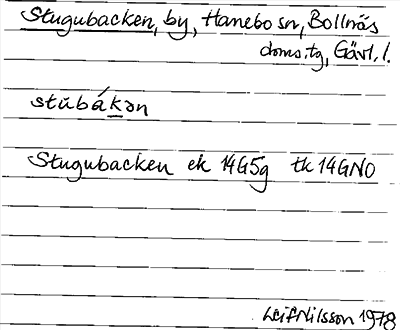 Stugubacken, by, Hanebo sn, Bollnäs
doms.tg, Gävl. l.
stu̅bákən
Stugubacken ek 14G5g tk 14GNO
Leif Nilsson 1978